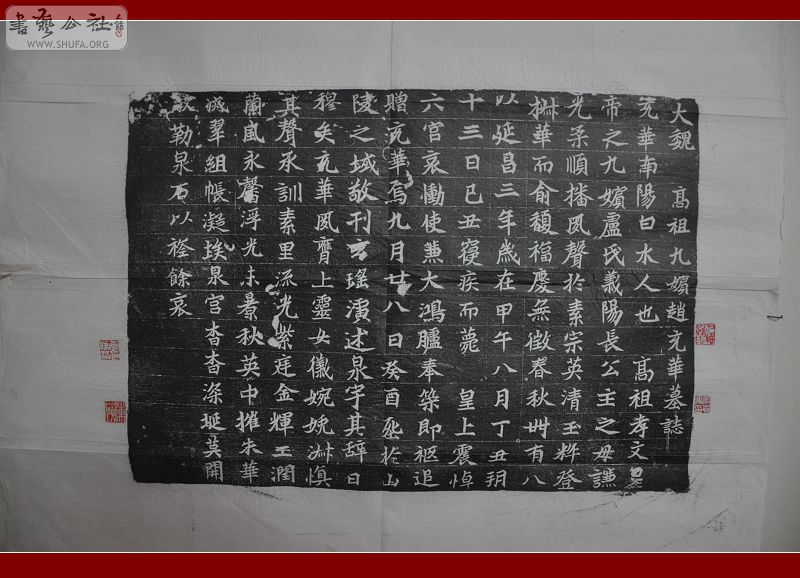 書藝公社
WWW.SHUFA.ORG
大魏 高祖九嬪趙充華墓誌
充華南陽白水人也 高祖孝文皇
帝之九嬪盧氏義陽長公主之母謙
光柔順播風聲於素宗英清玉粹登
椒華而俞馥福慶無徵春秋卌有八
以延昌三年歲在甲午八月丁丑朔
十三日己丑寢疾而薨 皇上震悼
六宮哀慟使兼大鴻臚奉策即柩追
贈充華焉九月廿八日癸酉厝於山
陵之域敬刊玄瑤演述泉宇其辭曰
穆矣充華風齊上靈女徽婉娩淋慎
其聲承訓素里流光紫庭金輝玉潤
蘭風永馨浮光未景秋英中摧朱華
滅翠組帳凝埃泉宮杳杳深埏莫開
敬勒泉石以旌餘哀